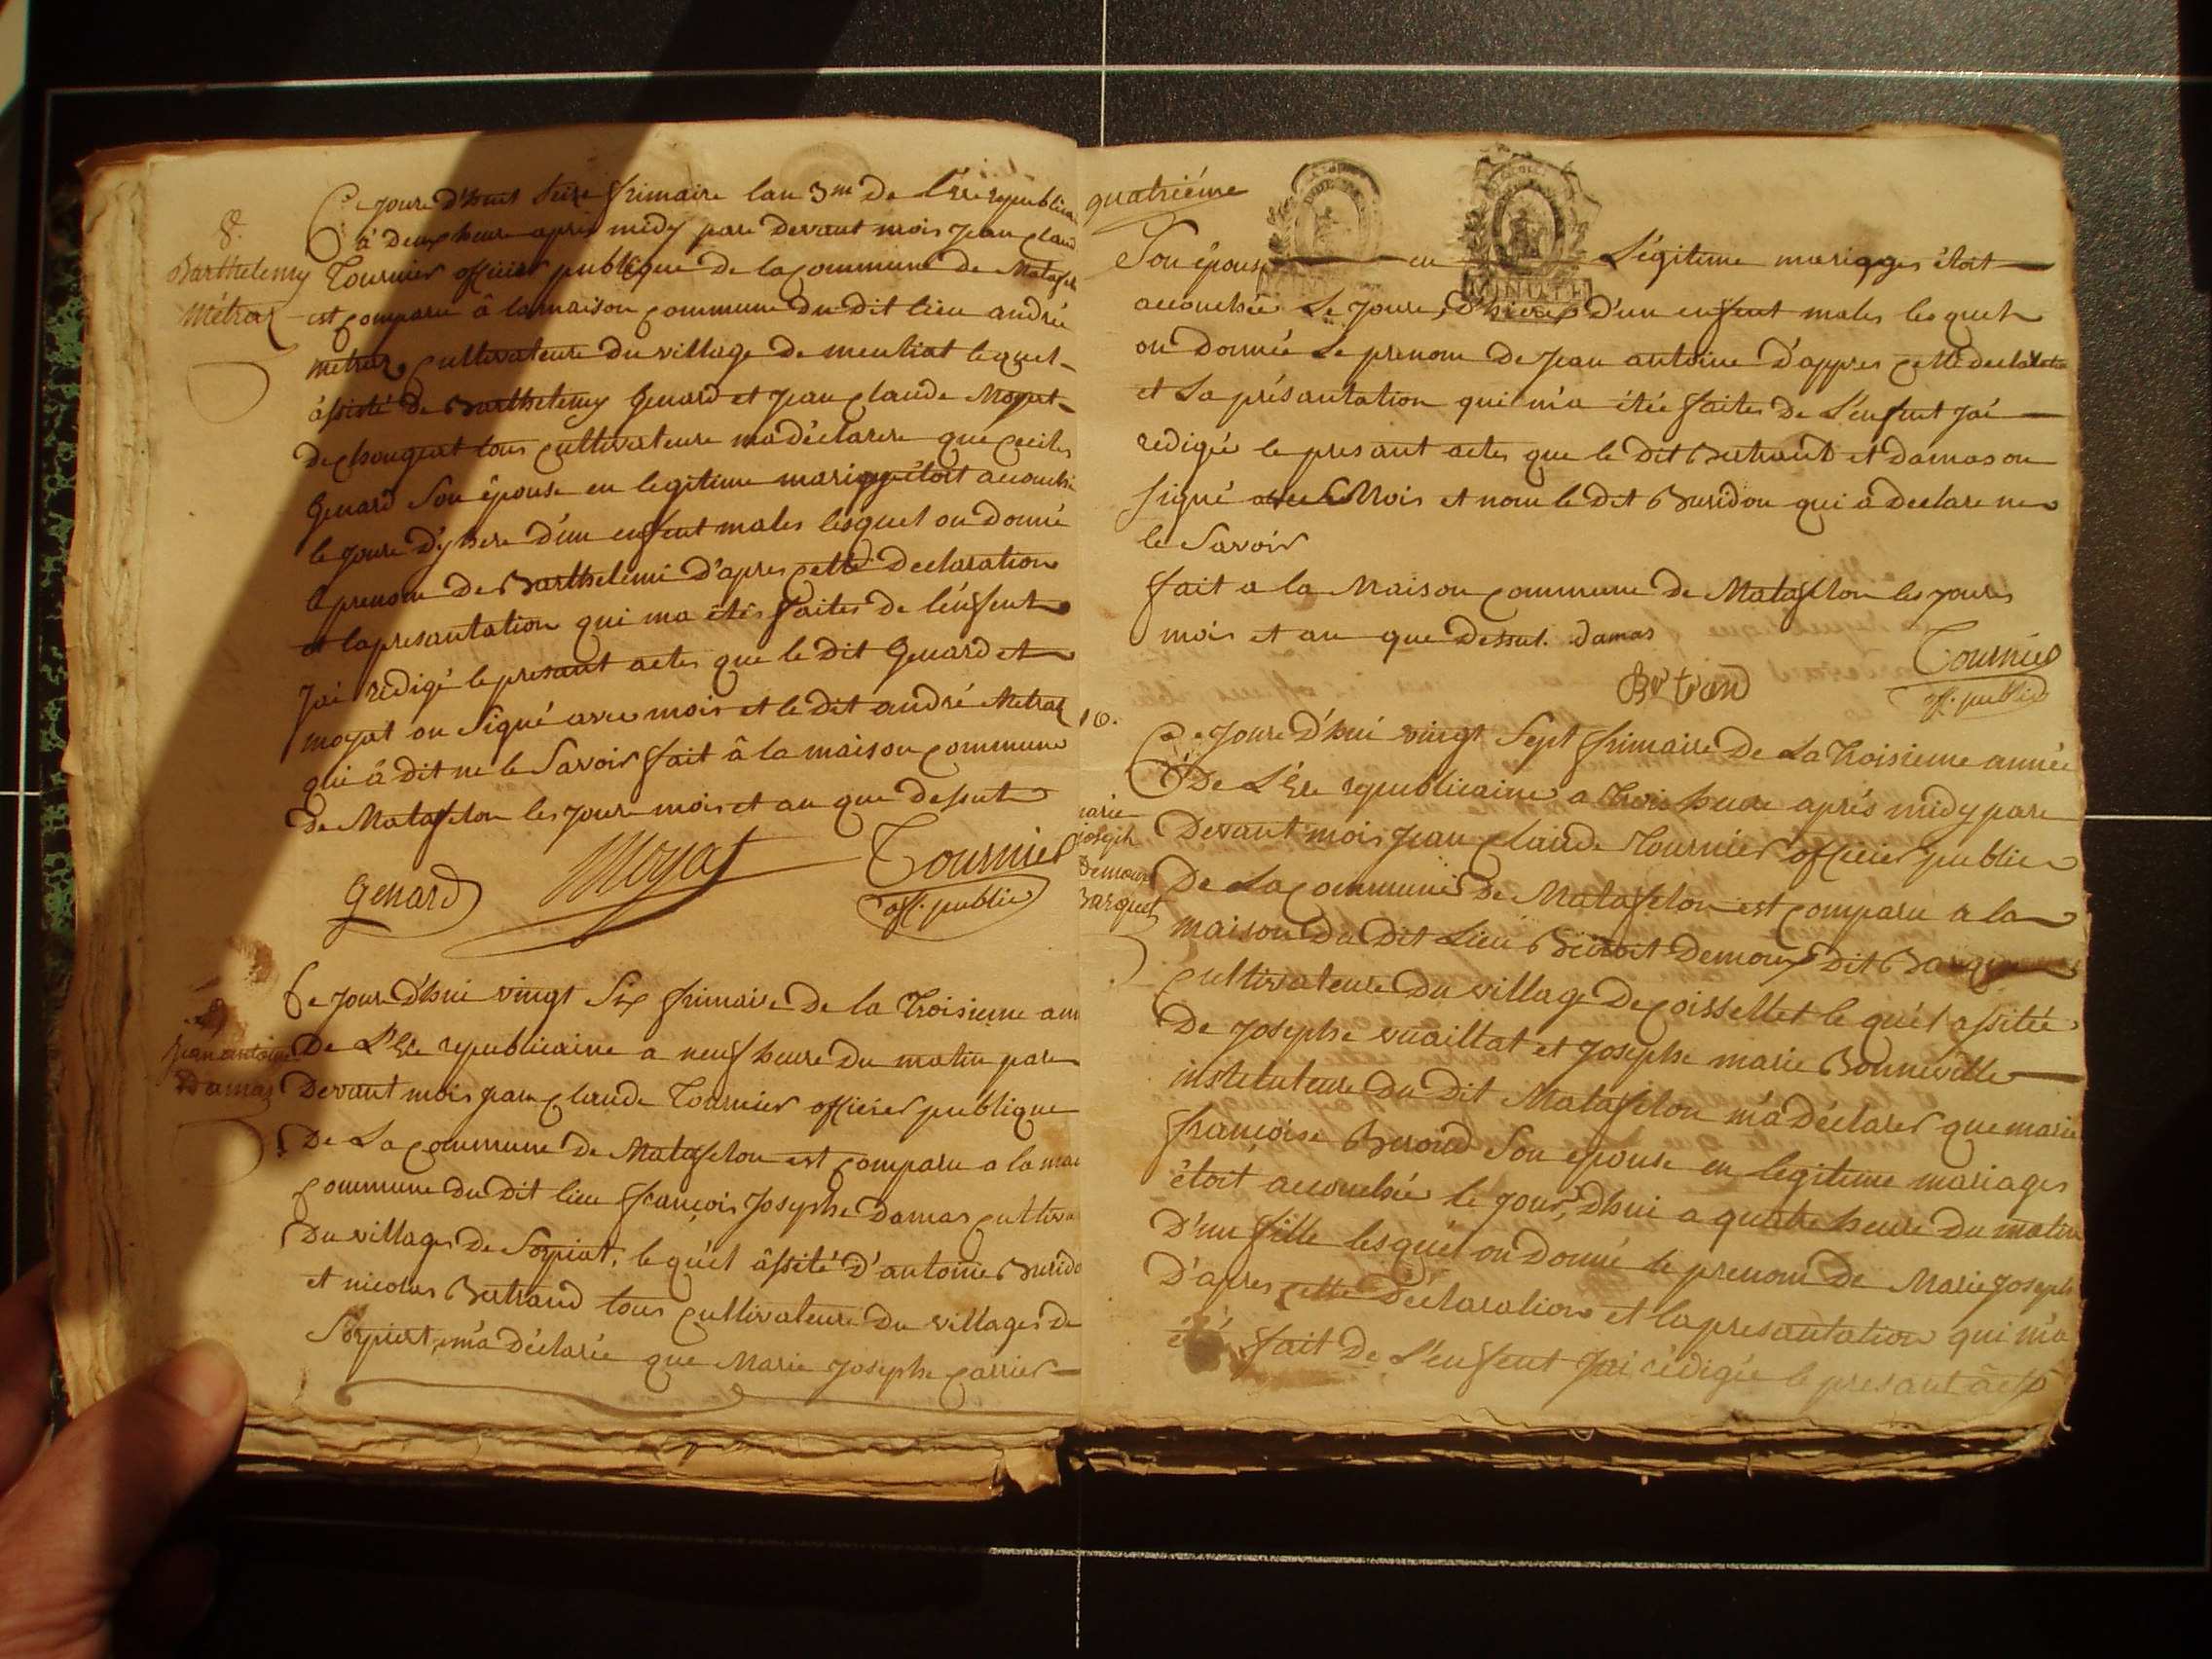 8.
Barthelemy
Métraz
Ce jourd'huit seize frimaire lan 3me de L'Ere republicai
à deux heure apres midy pare devant mois jean claud
Tournier officier publique de la commune de Matafel
est comparu â la maison commune du dit lieu andré
metraz cultivateure du village de meuliat le quel
âssisté de Barthelemy Genard et jean claude Moyat
de chougeat tous cultivateure ma déclarere que cecile
Genard son épouse en legitime mariage étoit accouché
le joure d'yhere d'un enfent males lesquel on donné
le prenom de Barthelemi d'apres cette declaration
et la presantation qui ma étés faites de l'enfent
j'ai redigé le presant actes que le dit Genard et
moyat on signé avec mois et le dit andré Metraz
qui â dit ne le savoir fait â la maison commune
de Matafelon les joure mois et an que dessut
Genard Moyat Tournier
off. public
9
jean antoine
Damas
Ce jourd'hui vingt six frimaire de la troisieme ann
de L'Ere republicaine a neuf heure du matin pare
devant mois jean claude Tournier officier publique
de La commune de Matafelon est comparu a la mai
commune du dit lieu françois josephe damas cultiva
du villages de Sorpiat, le quel âssité d'antoine Burido
et nicolas Bertrand tous cultivateure du villages de
Sorpiat, m'a déclarée que Marie josephe carrier
quatriéme
Son épouse en Légitime mariages étoit
accouchée Le joure, d'hiere d'un enfent males lesquel
on donnée Le prenom de jean antoine d'appres cette declaration
et La présantation qui m'a étée faites de L'enfent jai
redigée le presant actes que le dit Bertrand et damas on
signé avec Mois et nom le dit Buridon qui â declare ne
le savoir
fait a la Maison commune de Matafelon les joures
mois et an que dessut. damas
Bertrand Tournier
off. public
10.
marie
joseph
Demoux
Barquet
Ce joure d'hui vingt sept frimaire de La troisieme année
De L'Ere republicaine a trois heure aprés midy pare
Devant mois jean claude Tournier officier public
De La commune de Matafelon est comparu a la
maison du dit Lieu Benoit Demoux dit Barquet
cultivateure du village de coisselet le quel assitée
De josephe vuaillat et josephe marie Bonneville
instituteure du dit Matafelon m'a déclarer que marie
françoise Beroud son epouse en legitime mariages
étoit accouchée le jour, d'hui a quatre heure du matin
D'un fille lesquel on donné le prenom de Marie joseph
D'apres cette declaration et la presantation qui m'a
été fait de L'enfent jai rédigée le presant âcte